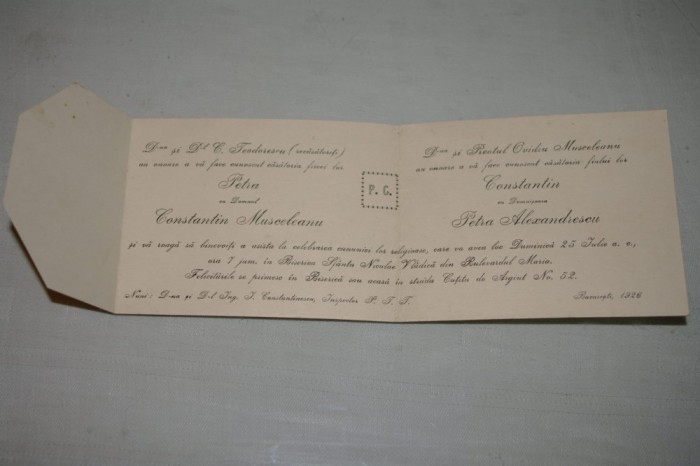 D-na și D-l C. Teodorescu (recăsătoriți)
au onoare a vă face cunoscut căsătoria fiicei lor
Petra
cu Domnul
Constantin Musceleanu
P. C.
D-na și Preotul Ovidiu Musceleanu
au onoare a vă face cunoscut căsătoria fiului lor
Constantin
cu Domnișoara
Petra Alexandrescu
și vă roagă să binevoiți a asista la celebrarea cununiei lor religioase, care va avea loc Duminică 25 Iulie a. c.,
ora 7 jum. în Biserica Sfântu Nicolae Vlădică din Bulevardul Maria.
Felicitările se primesc în Biserică sau acasă în strada Cuțitu de Argint No. 52.
Nuni: D-na și D-l Ing. I. Constantinescu, Inspector P. T. T.
București, 1926